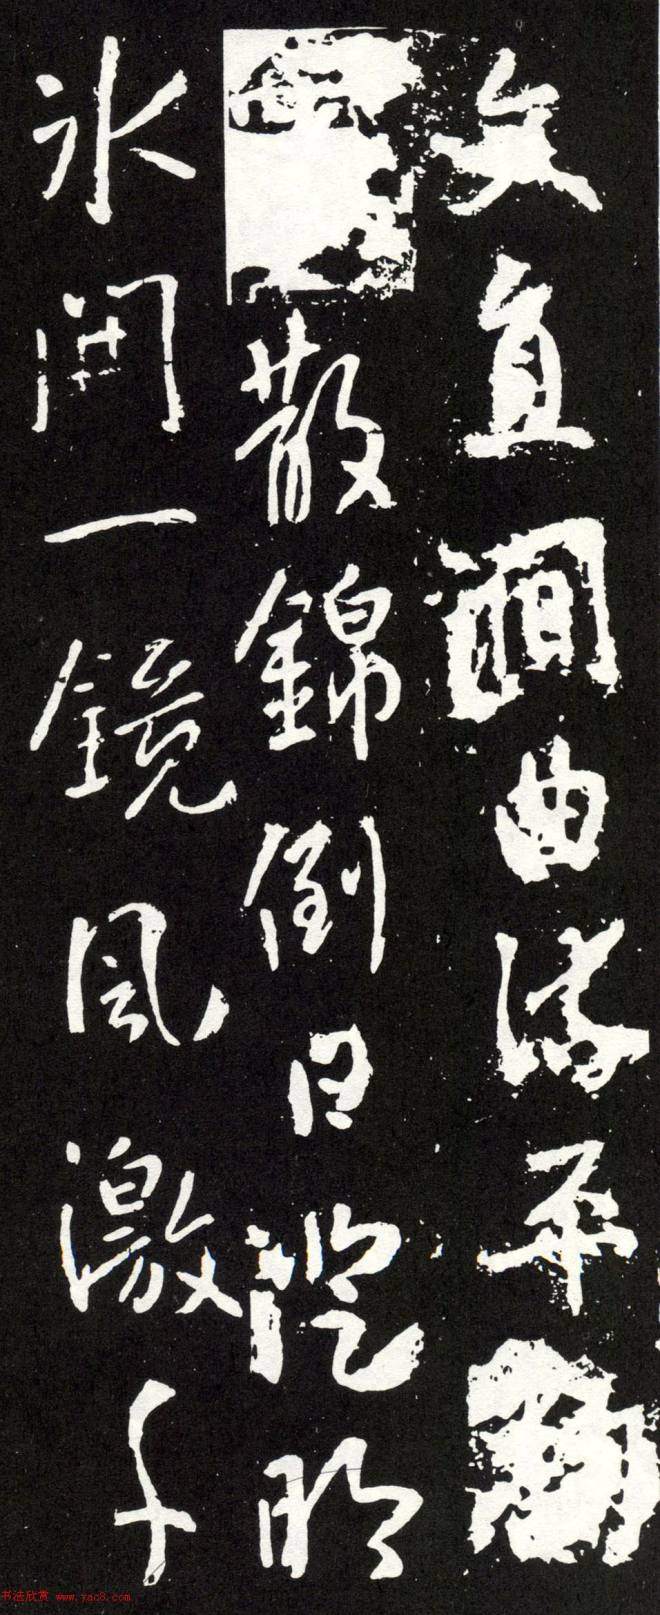 文直澗曲流平
散錦倒日澄明
冰開一鏡風激千
书法欣赏 www.yac8.com